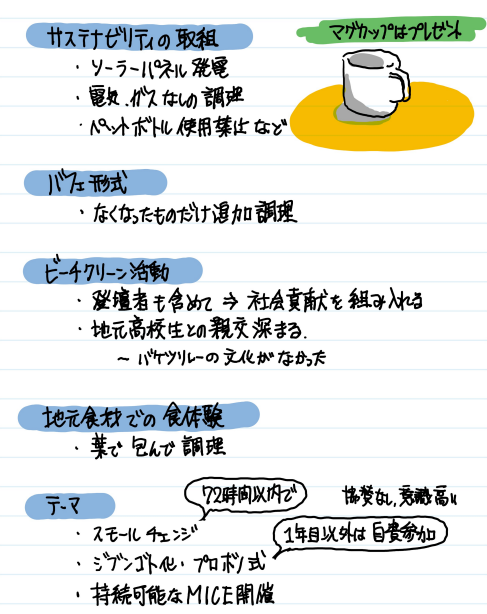 サステナビリティの取組
マグカップはプレゼント
・ソーラーパネル発電
・電気、ガスなしの調理
・ペットボトル使用禁止など
バフェ形式
・なくなったものだけ追加調理
ビーチクリーン活動
・登壇者も含めて ⇒ 社会貢献を組み入れる
・地元高校生との親交深まる.
~ バケツリレーの文化がなかった
地元食材での食体験
・葉で包んで調理
テーマ
72時間以内で
協賛なし、意識高い
・スモールチェンジ
1年目以外は自費参加
・ジブンゴト化・プロボノ式
・持続可能なMICE開催